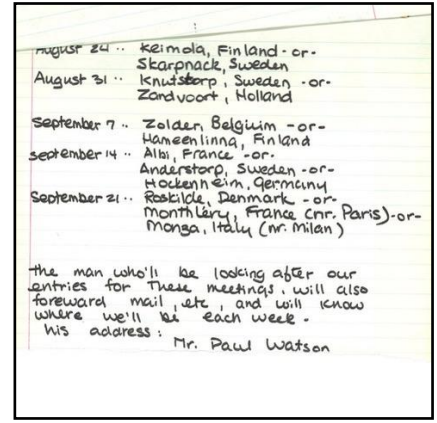 August 24 .. Keimola, Finland - or -
Skarpnack, Sweden
August 31 .. Knutstorp, Sweden - or -
Zandvoort, Holland
September 7 .. Zolder, Belgium - or -
Hameenlinna, Finland
september 14 .. Albi, France - or -
Anderstorp, Sweden - or -
Hockenheim, Germany
September 21 .. Roskilde, Denmark - or -
Monthlery, France (nr. Paris) - or -
Monza, Italy (nr. Milan)
the man who'll be looking after our
entries for these meetings, will also
foreward mail, etc, and will know
where we'll be each week -
his address:
Mr. Paul Watson